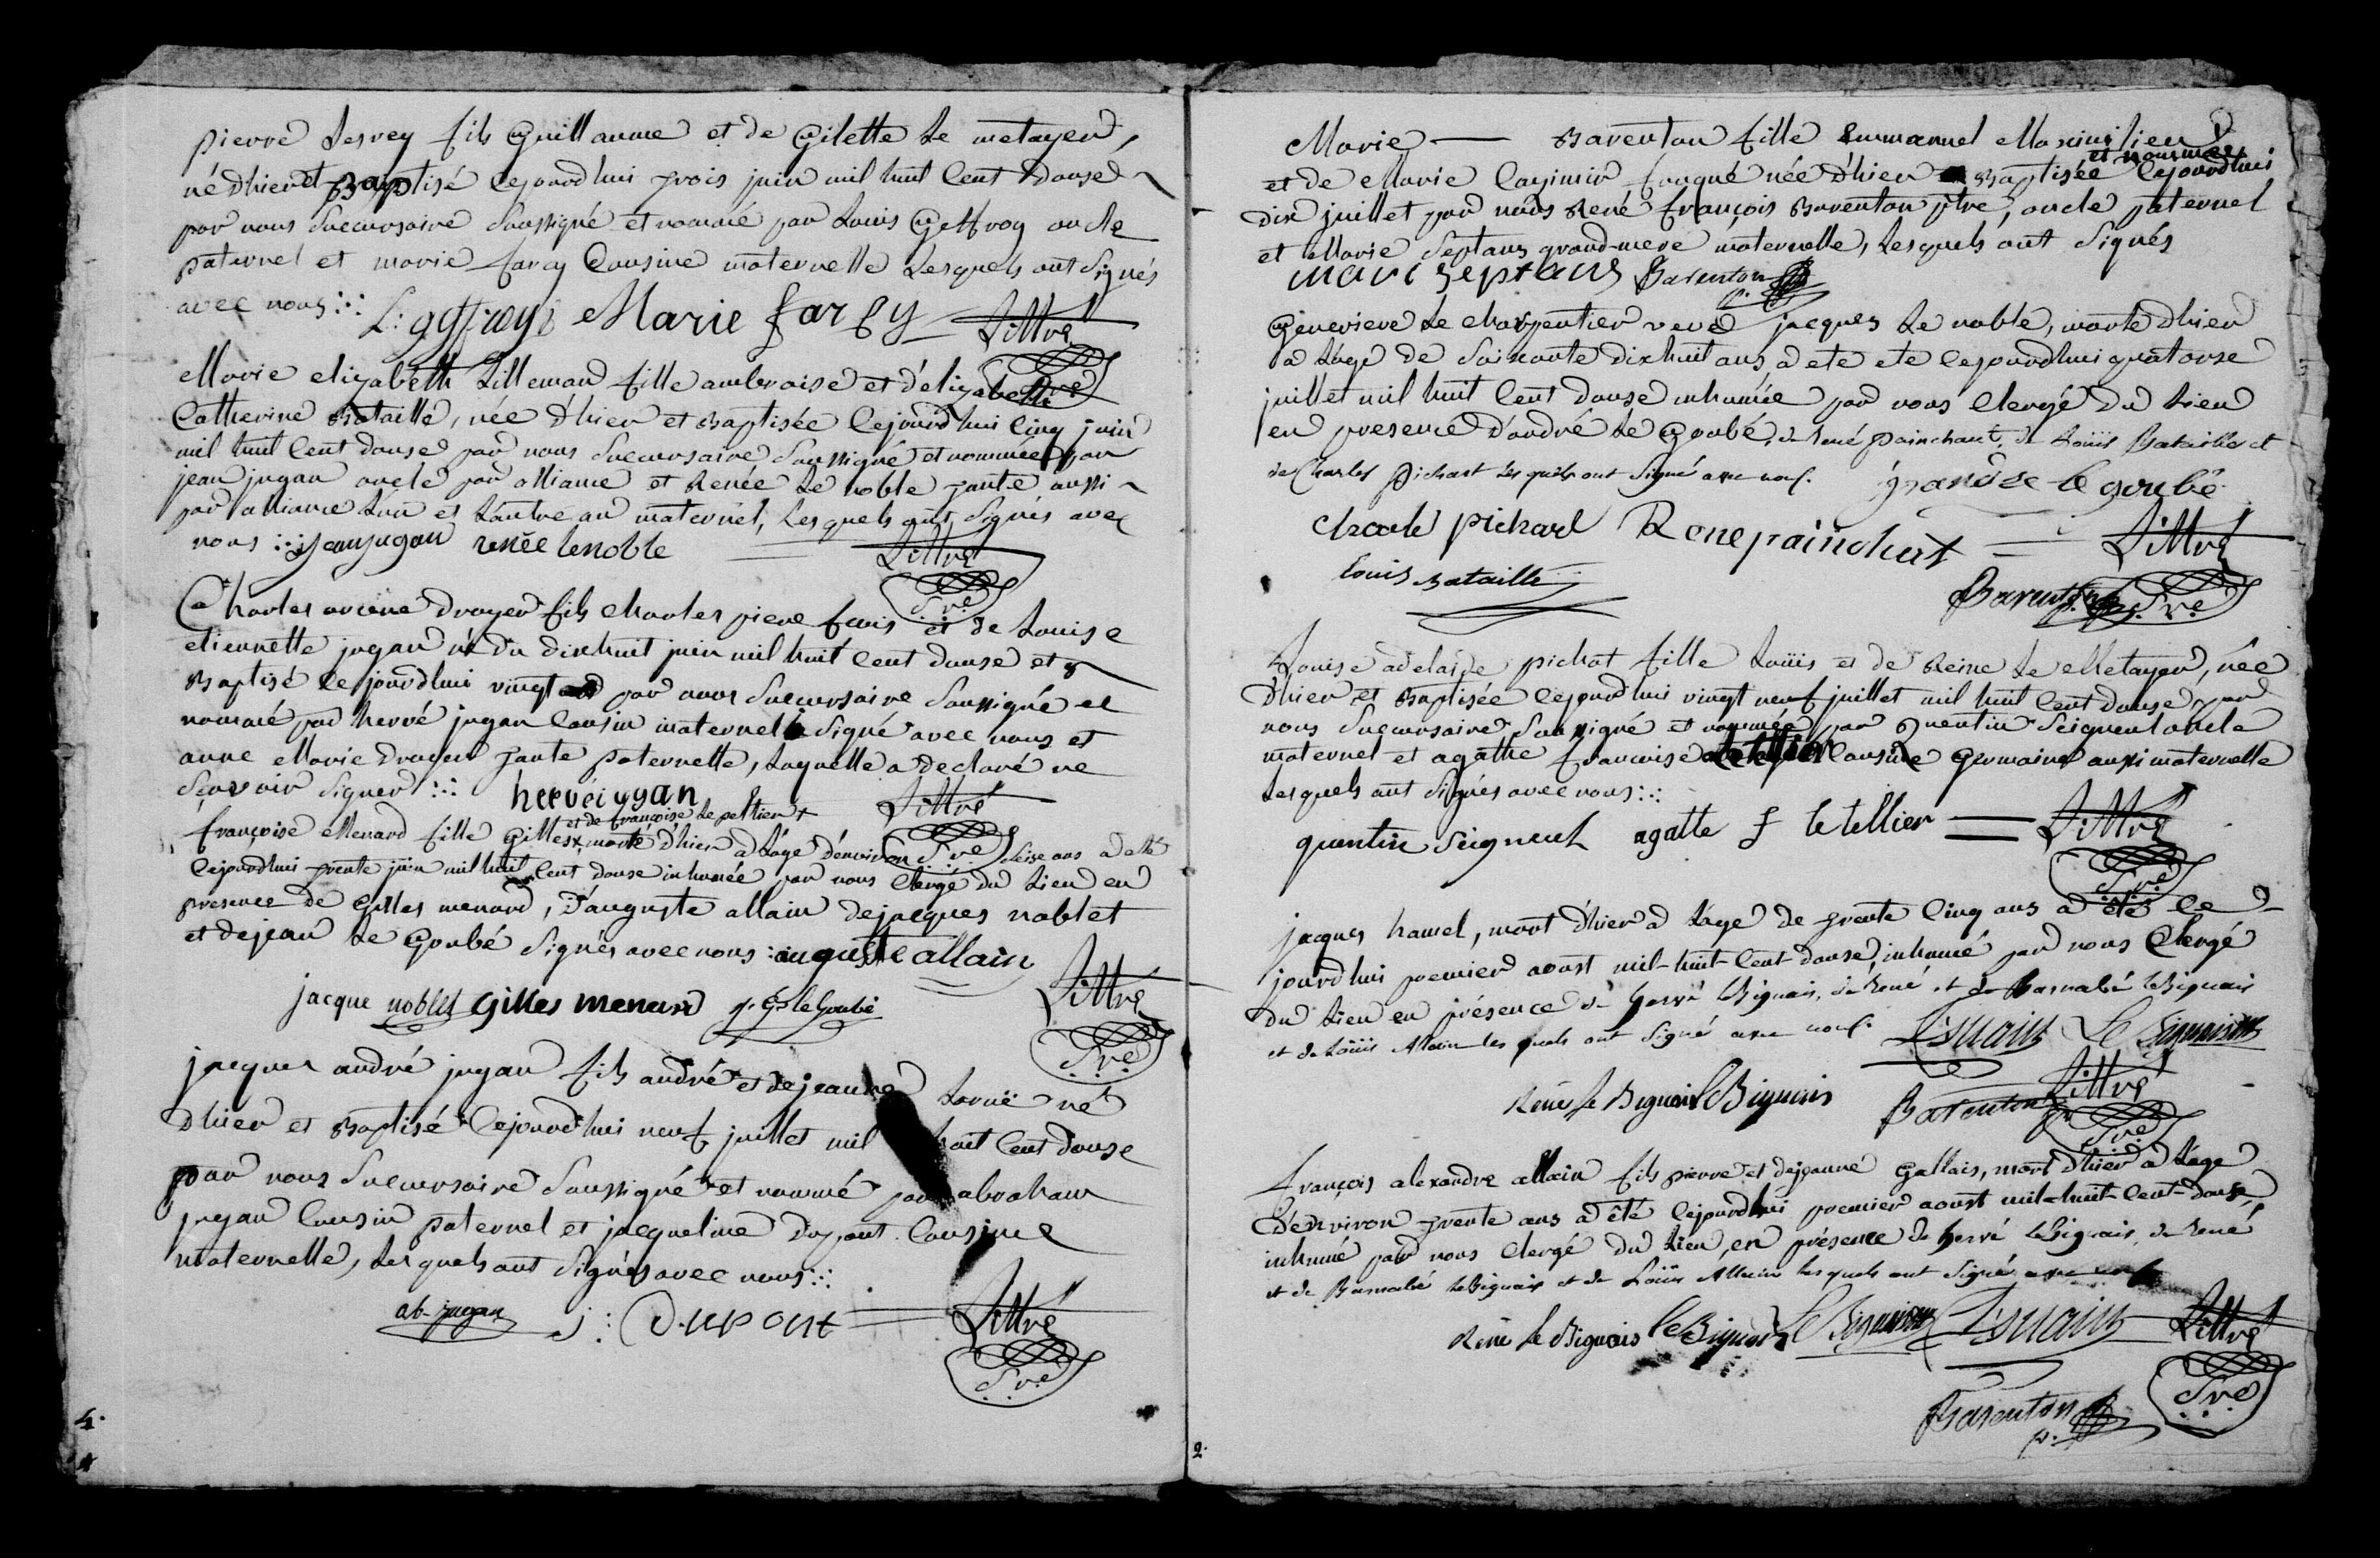 pierre Lesvey fils Guillaume et de Gilette Le metayer,
né dhier et Baptisé cejourdhui trois juin mil huit Cent douse
par nous Succursaire Soussigné et nommé par Louis Geffroy oncle
paternel et marie farcy Cousine maternelle Lesquels ont Signés
avec nous
L: geffroys Marie farcy Littré
Sre
Marie elizabeth Lilleman fille ambroise et d'elizabeth
Catherine Bataille, née d'hier et Baptisée Cejourdhui Cinq juin
mil huit Cent douse par nous Succursaire Soussigné et nommée par
jean jugan oncle par alliance et Renée Le noble tante aussi
par alliance Lun et Lautre au maternel, Lesquels ont Signés avec
nous jean jugan renée lenoble Littré
Sre
Charles droyer fils charles piere fcois et de Louise
etiennette jugan né du dixhuit juin mil huit Cent douse et
Baptisé Cejourdhui vingt par nous Succursaire Soussigné et
nommé par hervé jugan Cousin maternel Signé avec nous et
anne Marie droyer tante paternelle, Laquelle a declaré ne
Scavoir Signer hervé jugan Littré
Sre
et de françoise Le peltier
françoise Menard fille Gilles morte d'hier a Lage denviron Seise ans a eté
Cejourdhui trente juin mil huit Cent douse inhumée par nous Clergé du Lieu en
presence de Gilles menard, d'auguste allain de jacques noblet
et de jean Le Goubé Signés avec nous auguste allain
jacque noblet Gilles menard j. G. le Goubé Littré
Sre
jacques andré jugan fils andré et de jeanne Lorüe né
dhier et Baptisé Cejourdhui neuf juillet mil huit Cent douse
par nous Succursaire Soussigné et nommé par abraham
jugan Cousin paternel et jacqueline dupont Cousine
maternelle, Lesquels ont Signés avec nous
ab. jugan j: Dupont Littré
Sre
4.
Marie Barenton fille Emmanuel Maximilien
et nommée
et de Marie Casimir fouqué née d'hier Baptisée Cejourdhui
dix juillet par nous René françois Barenton ptre, oncle paternel
et Marie Septans grand-mere maternelle, Lesquels ont Signés
mari septans Barenton p.
Genevieve Le charpentier veue jacques Le noble, morte dhier
a Lage de Soixante dixhuit ans, a ete ete Cejourdhui quatorse
juillet mil huit Cent douse inhumée par nous Clergé du Lieu
en presence d'andré Le Goubé, de René painchaut, de Loüis Bataille et
de Charles pichart Lesquels ont Signé avec nous. le goubé
charle pichard Rene painchart Littré
Louis Bataille Barenton p. Sre
Louise adelaïde pichot fille Loüis et de Reine Le Métayer, née
dhier et Baptisée Cejourdhui vingt neuf juillet mil huit Cent douse, par
nous Succursaire Soussigné et nommée par quentin Seigneul oncle
maternel et agathe françoise Letellier Cousine Germaine aussi maternelle
Lesquels ont Signés avec nous
quentin Seigneul agatte f letellier Littré
Sre
jacques hamel, mort d'hier a Lage de trente Cinq ans a été Ce
jourdhui premier aoust mil-huit-Cent-douse, inhumé par nous Clergé
du Lieu en présence de hervé leBignais, de René et de Barnabé leBignais
et de Loüis Allain les quels ont signé avec nous. Le Bignais
René le Bignais leBignais Barenton Littré
Sre
françois alexandre allain fils pierre et de jeanne Gallais, mort dhier a Lage
d'environ trente ans a été Cejourdhui premier aoust mil-huit-Cent-douse,
inhumé par nous Clergé du Lieu, en présence de hervé leBignais, de René
et de Barnabé leBignais et de Loüis Allain les quels ont signé avec nous
René le Bignais leBignais Le Bignais Littré
Barenton p. Sre
2.